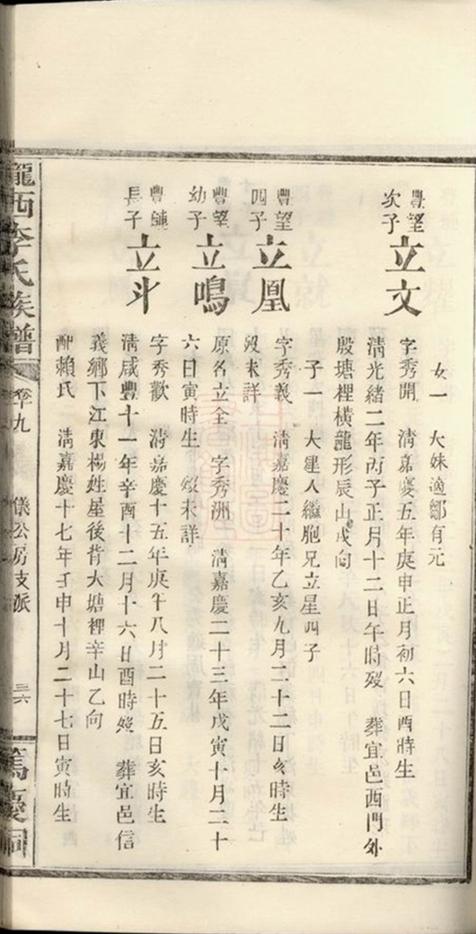 女一 大妹適鄒有元
豐望次子 立文 字秀開 清嘉慶五年庚申正月初六日酉時生
清光緒二年丙子正月十二日午時歿 葬宜邑西門外
殷塘裡橫龍形辰山戌向
子一 大星人繼胞兄立星四子
豐望四子 立凰 字秀義 清嘉慶二十年乙亥九月二十二日亥時生
歿未詳
豐望幼子 立鳴 原名立全 字秀洲 清嘉慶二十三年戊寅十月二十
六日寅時生 歿未詳
豐鏈長子 立斗 字秀歡 清嘉慶十五年庚午八月二十五日亥時生
清咸豐十一年辛酉十二月十六日酉時歿 葬宜邑信
義鄉下江東楊姓屋後背大塘裡辛山乙向
配賴氏 清嘉慶十七年壬申十月二十七日寅時生
隴西李氏族譜 卷九 儀公房支派 三六 篤慶祠